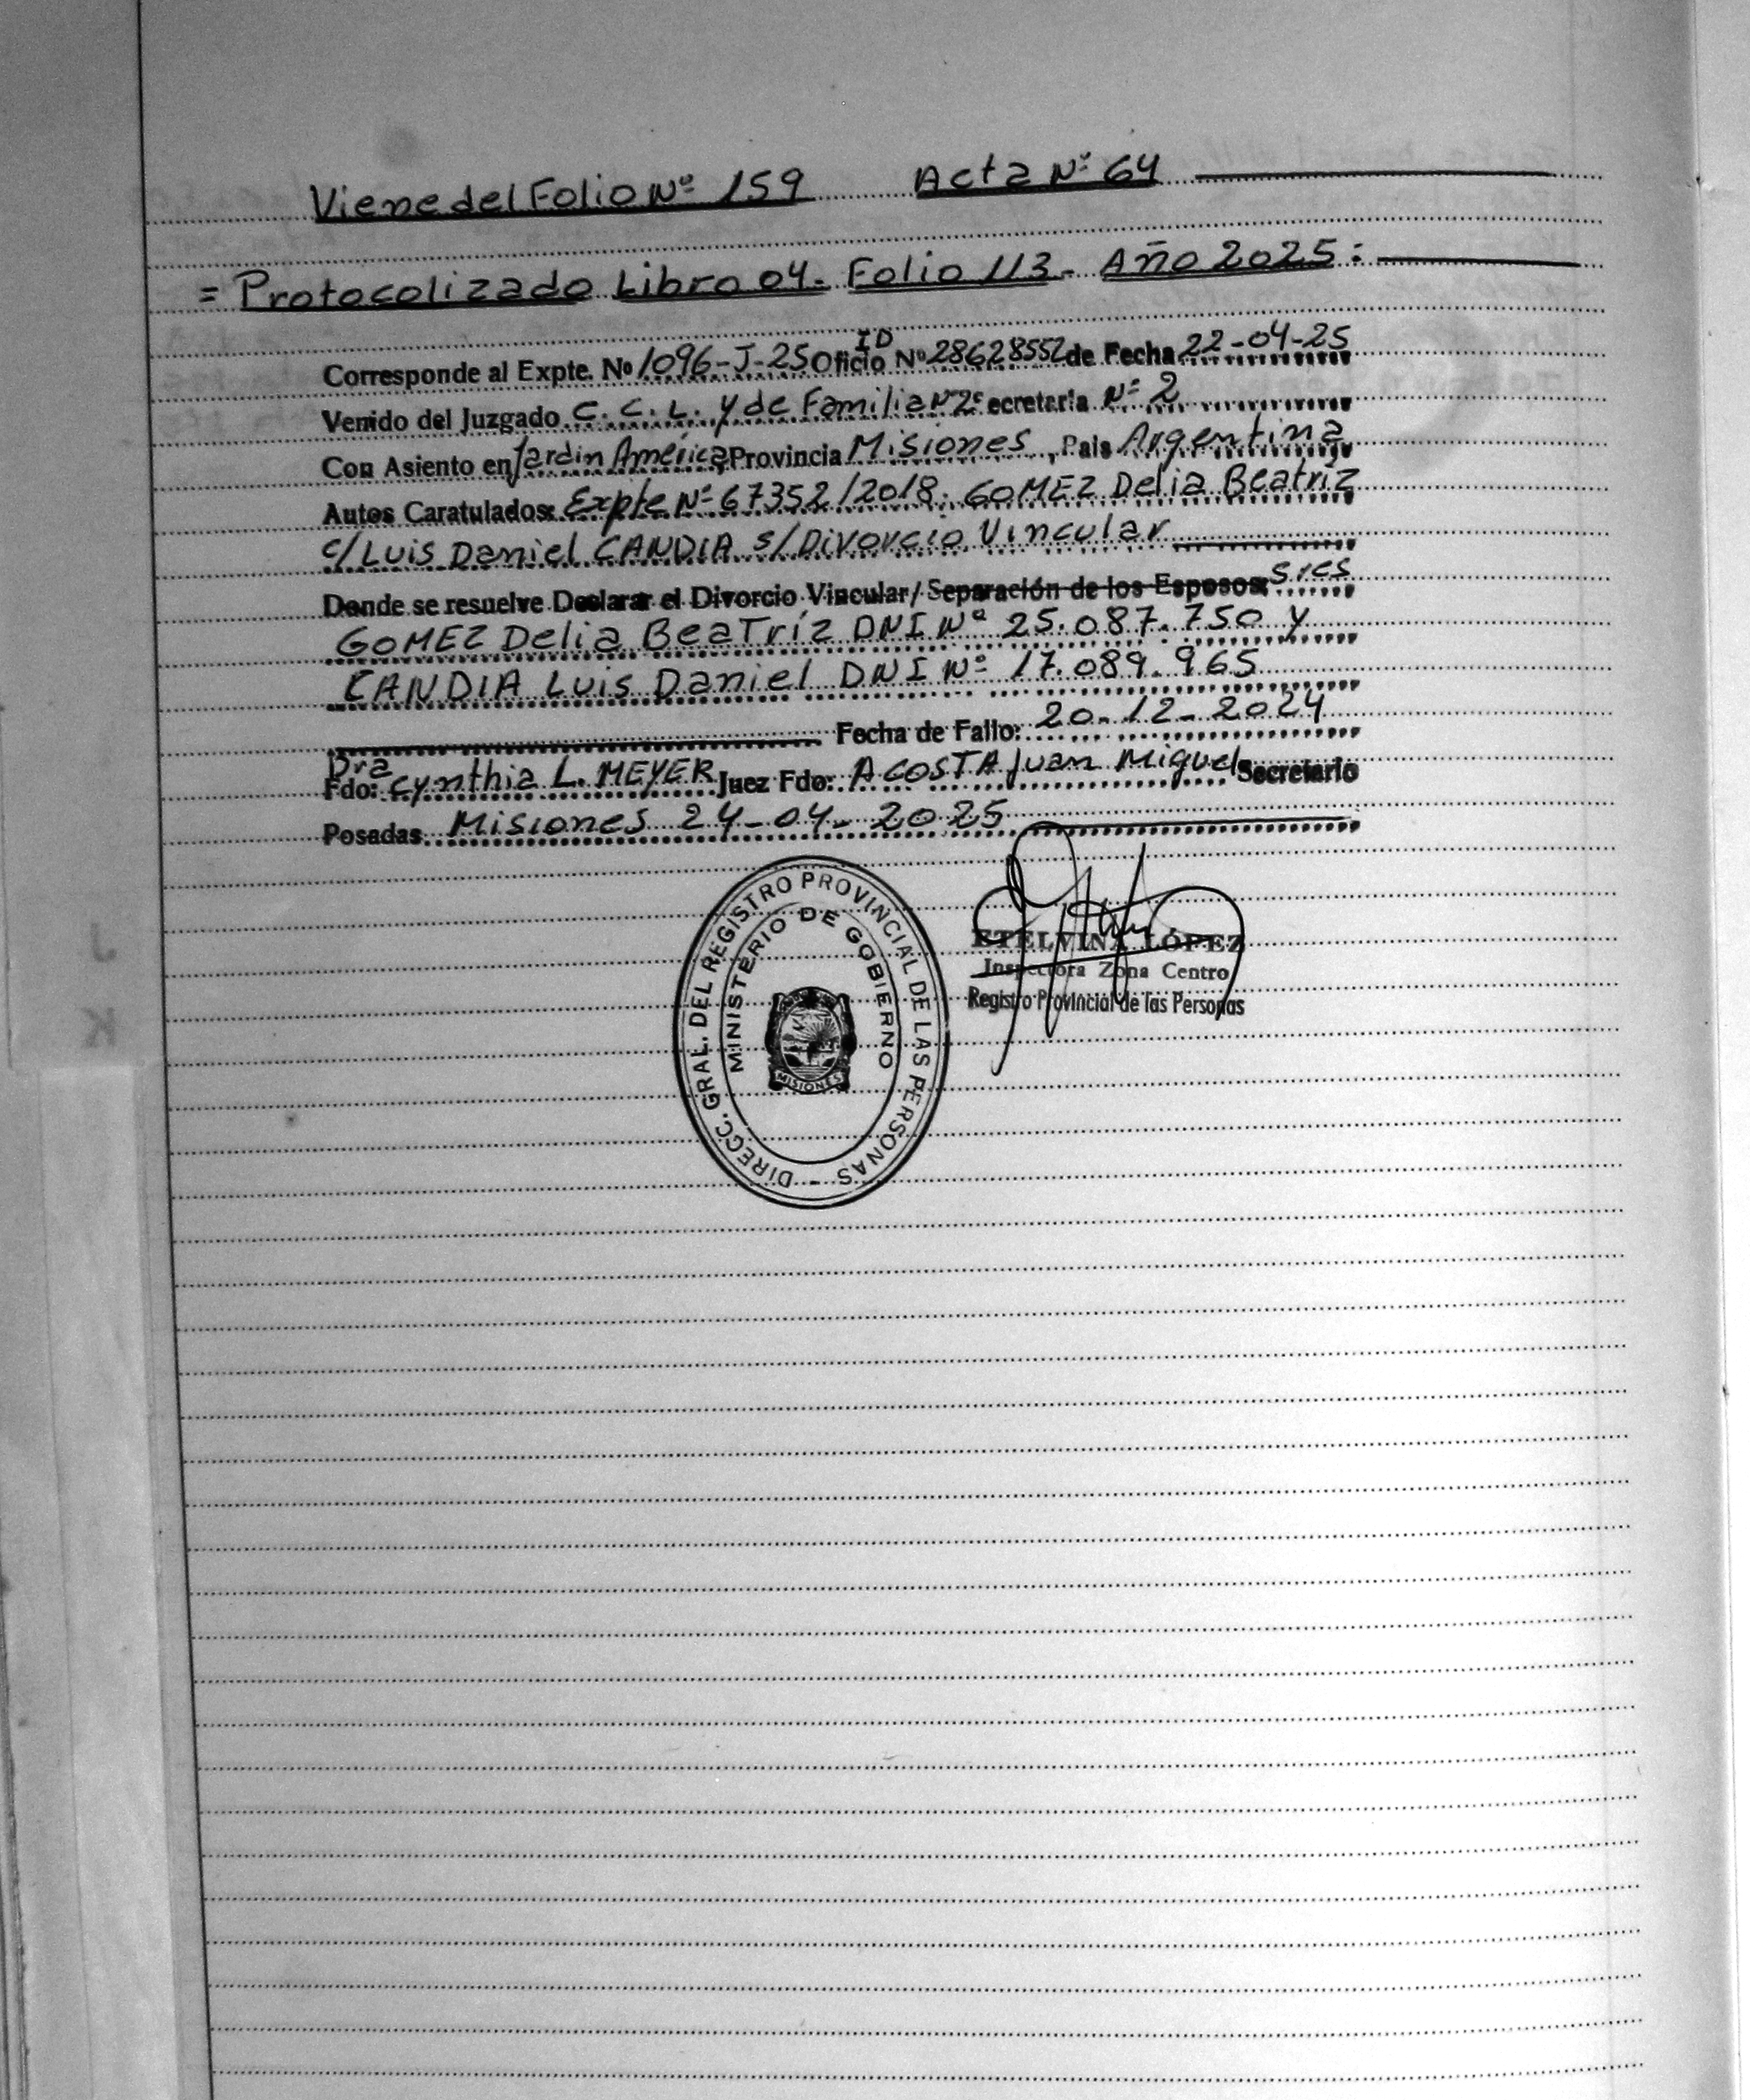 Viene del Folio Nº 159 Acta Nº 64
= Protocolizado Libro 04. Folio 113- Año 2025:
Corresponde al Expte. Nº 1096-J-25 Oficio ID Nº 28628552 de Fecha 22-04-25
Venido del Juzgado C. C. L. y de Familia Nº 2 Secretaria Nº 2
Con Asiento en Jardín América Provincia Misiones, Pais Argentina
Autos Caratulados: Expte Nº 67352/2018. GOMEZ Delia Beatríz
c/ Luis Daniel CANDIA s/ Divorcio Vincular
Donde se resuelve Declarar el Divorcio Vincular/ Separación de los Esposos: Sres
GOMEZ Delia Beatríz DNI Nº 25.087.750 y
CANDIA Luis Daniel DNI Nº 17.089.965
Fecha de Fallo: 20-12-2024
Fdo: Dra Cynthia L. MEYER Juez Fdo: ACOSTA Juan Miguel Secretario
Posadas, Misiones 24-04-2025
DIRECC. GRAL. DEL REGISTRO PROVINCIAL DE LAS PERSONAS -
MINISTERIO DE GOBIERNO
MISIONES
ETELVINA LÓPEZ
Inspectora Zona Centro
Registro Provincial de las Personas
J
K